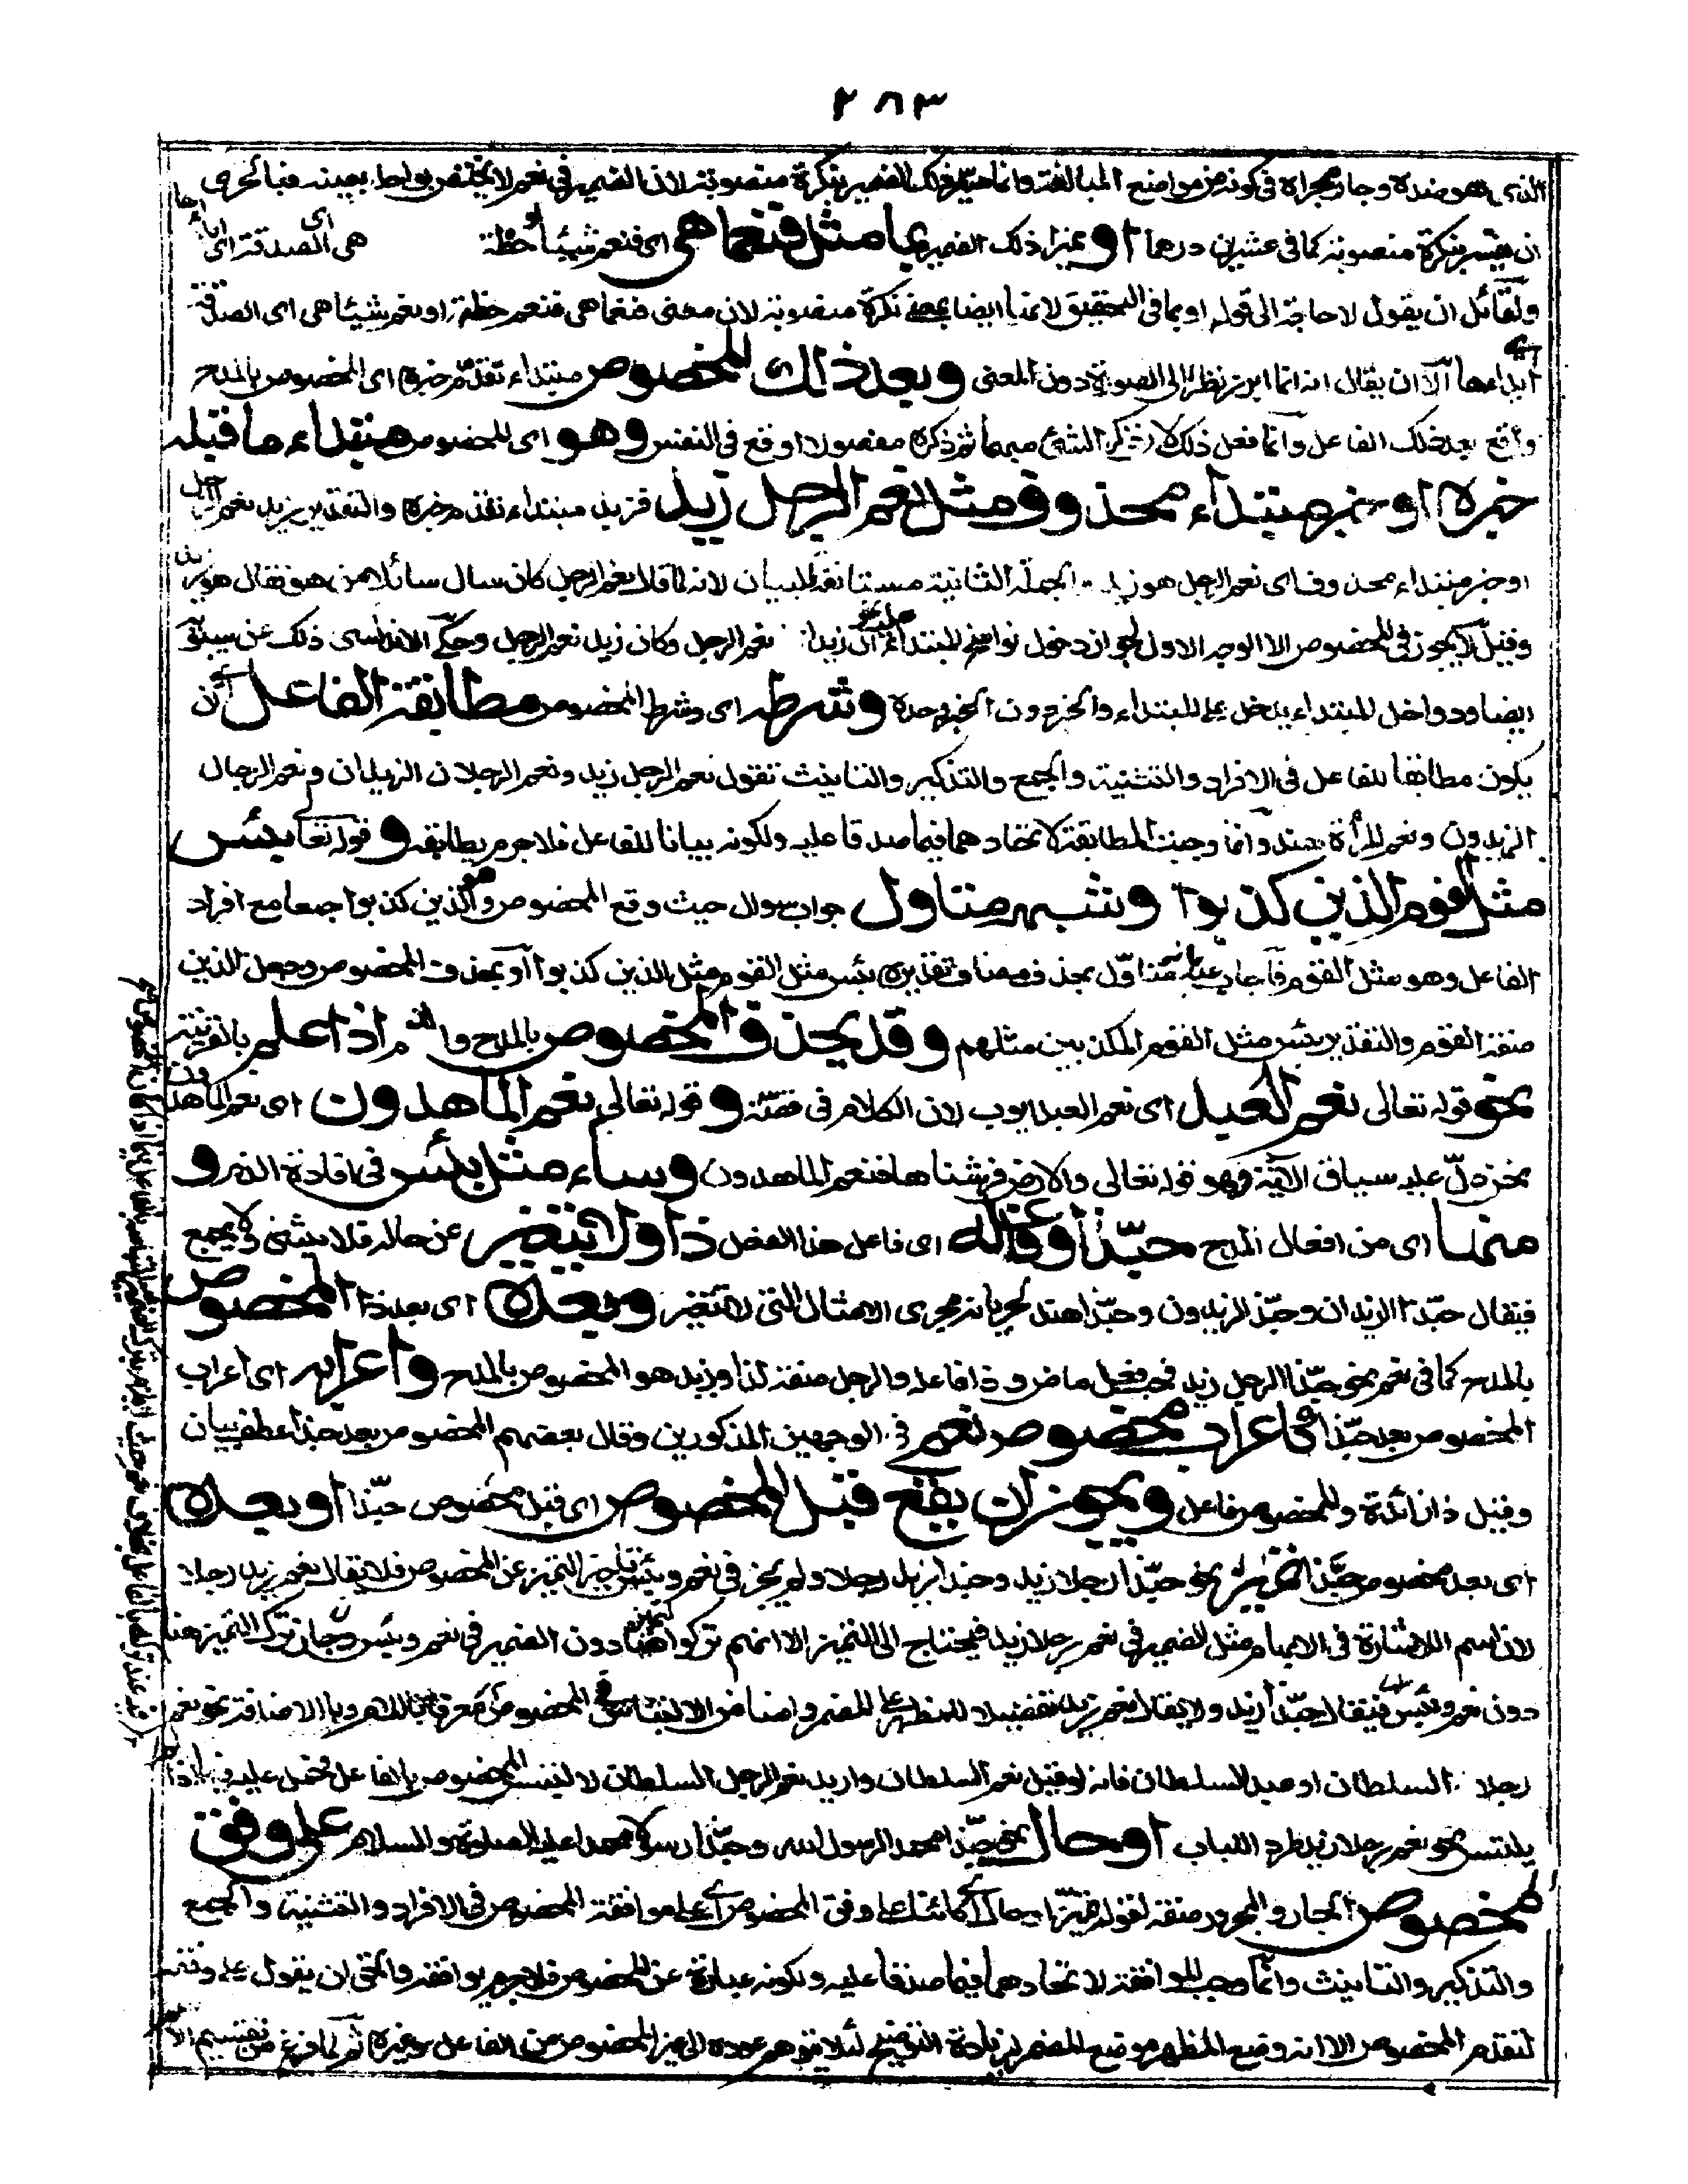 ٢٨٣
الذي هو ضده وجار مجراه في كونه من مواضع المبالغة وانما ميز ذلك الضمير بنكرة منصوبة لان الضمير في نعم لا يختص بواحد بعينه فبالحرى
ان يفسر بنكرة منصوبة كما في عشرين درهما او يميز ذلك الضمير بما مثل فنعما هي اى فنعم شيئا هي اى الصدقة اى
ولقائل ان يقول لا حاجة الى قوله او بما في التحقيق لانها ايضا بمعنى نكرة منصوبة لان معنى فنعما هي فنعم او نعم شيئا هي اى الصدقة
ابداءها الا ان يقال انه انما ابرز نظرا الى الصورة دون المعنى وبعد ذلك المخصوص مبتداء تقدم خبره اى المخصوص بالمدح
واقع بعد ذلك الفاعل وانما فعل ذلك لان ذكر الشئ مبهما ثم ذكره مفصولا اوقع في النفس وهو اى المخصوص مبتداء ما قبله
خبره او خبر مبتداء محذوف مثل نعم الرجل زيد فزيد مبتداء تقدم خبره والتقدير زيد نعم الرجل
او خبر مبتداء محذوف اى نعم الرجل هو زيد الجملة الثانية مستانفة للبيان لانه لما قال نعم الرجل كان سال سائلا من هو فقال هو زيد
وقيل لا يجوز في المخصوص الا الوجه الاول لجواز دخول نواسخ المبتداء عليه نحو ان زيدا نعم الرجل وكان زيد نعم الرجل وحكى الاندلسى ذلك عن سيبويه
ايضا ودواخل المبتداء يدخل على المبتداء والخبر دون الخبر وحده وشرطه اى وشرط المخصوص مطابقة الفاعل اى ان
يكون مطابقا للفاعل في الافراد والتثنية والجمع والتذكير والتانيث تقول نعم الرجل زيد ونعم الرجلان الزيدان ونعم الرجال
الزيدون ونعم المرأة هند وانما وجبت المطابقة لاتحادهما فيما صدقا عليه ولكونه بيانا للفاعل فلا جرم يطابقه وقوله تعالى بئس
مثل القوم الذين كذبوا وشبهه متاول جواب سوال حيث وقع المخصوص وهو الذين كذبوا جمعا مع افراد
الفاعل وهو مثل القوم فاجاب عنه بانه متاول بحذف مضاف تقديره بئس مثل القوم مثل الذين كذبوا او بحذف المخصوص وجعل الذين
صفة القوم والتقدير بئس مثل القوم المكذبين مثلهم وقد يحذف المخصوص بالمدح والذم اذا علم بالقرينة
نحو قوله تعالى نعم العبد اى نعم العبد ايوب لان الكلام في قصته وقوله تعالى نعم الماهدون اى نعم الماهدون
نحن دل عليه سياق الاية وهو قوله تعالى والارض فرشناها فنعم الماهدون وساء مثل بئس في افادة الذم و
منها اى من افعال المدح حبذا وفاعله اى فاعل هذا الفعل ذا ولا يتغير عن حاله فلا يثنى ولا يجمع
فيقال حبذا الزيدان وحبذا الزيدون وحبذا هند لجريانه مجرى الامثال التي لا تتغير وبعده اى بعد ذا المخصوص
بالمدح كما في نعم نحو حبذا الرجل زيد فحب فعل ماض وذا فاعله والرجل صفة لذا وزيد هو المخصوص بالمدح واعرابه اى اعراب
المخصوص بعد حبذا اعراب مخصوص نعم في الوجهين المذكورين وقال بعضهم المخصوص بعد حبذا عطف بيان
وقيل ذا زائدة والمخصوص فاعل ويجوز ان يقع قبل المخصوص اى قبل مخصوص حبذا او بعده
اى بعد مخصوص حبذا تمييز نحو حبذا رجلا زيد وحبذا زيد رجلا ولم يجز في نعم وبئس تاخير التميز عن المخصوص فلا يقال نعم زيد رجلا
لان اسم الاشارة في الابهام مثل الضمير في نعم رجلا زيد فيحتاج الى التميز الا انهم تركوا هنا دون الضمير في نعم وبئس وجاز ترك التميز هنا
دون نعم وبئس فيقال حبذا زيد ولا يقال نعم زيد تفضيلا للمظهر على المضمر وامنا من الالتباس في المخصوص معرفا باللام وبالاضافة نحو نعم
رجلا السلطان او عبد السلطان فانه لو قيل نعم السلطان واريد نعم الرجل السلطان لالتبس المخصوص بالفاعل فحمل عليه اذا
يلتبس نحو نعم رجلا زيد طردا للباب او حال نحو حبذا محمد رسول الله وحبذا رسولا محمد عليه الصلوة والسلام على وفق
مخصوص الجار والمجرور صفة لقوله تميزا او حال اى كائنا على وفق المخصوص اى على موافقة المخصوص في الافراد والتثنية والجمع
والتذكير والتانيث وانما وجب الموافقة لاتحادهما فيما صدقا عليه ولكونه عبارة عن المخصوص فلا جرم يوافقه والحق ان يقول على وفقه
لتقدم المخصوص الا انه وضع المظهر موضع المضمر لزيادة التوضيح لئلا يتوهم عوده الى غير المخصوص من الفاعل وغيره ثم لما فرغ من تقسيم